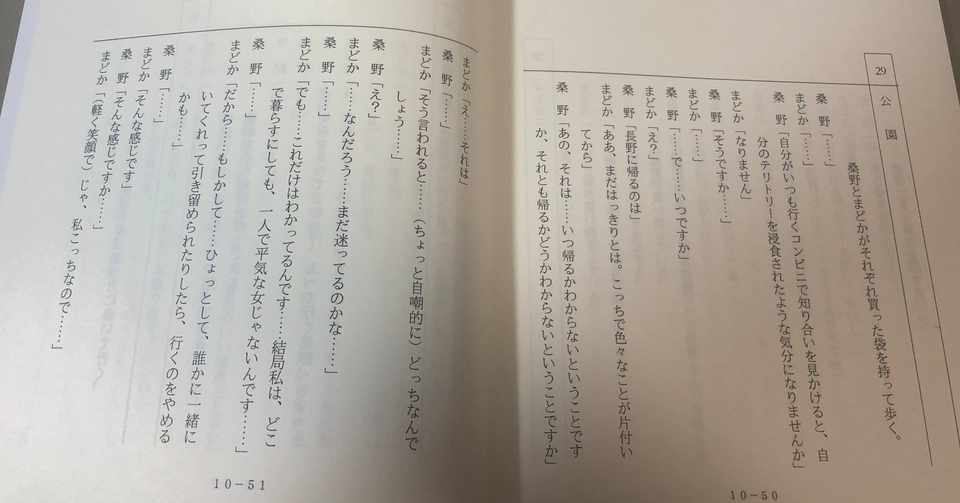 29
公　園
桑野とまどかがそれぞれ買った袋を持って歩く。
桑　野「……」
まどか「……」
桑　野「自分がいつも行くコンビニで知り合いを見かけると、自
分のテリトリーを浸食されたような気分になりませんか」
まどか「なりません」
桑　野「そうですか……」
まどか「……」
桑　野「……で……いつですか」
まどか「え？」
桑　野「長野に帰るのは」
まどか「ああ、まだはっきりとは。こっちで色々なことが片付い
てから」
桑　野「あの、それは……いつ帰るかわからないということです
か、それとも帰るかどうかわからないということですか」
10-50
まどか「え……それは」
桑　野「……」
まどか「そう言われると……（ちょっと自嘲的に）どっちなんで
しょう……」
桑　野「え？」
まどか「……なんだろう……まだ迷ってるのかな……」
桑　野「……」
まどか「でも……これだけはわかってるんです……結局私は、どこ
で暮らすにしても、一人で平気な女じゃないんです……」
桑　野「……」
まどか「だから……もしかして……ひょっとして、誰かに一緒に
いてくれって引き留められたりしたら、行くのをやめる
かも……」
桑　野「……」
まどか「そんな感じです」
桑　野「そんな感じですか……」
まどか「（軽く笑顔で）じゃ、私こっちなので……」
10-51